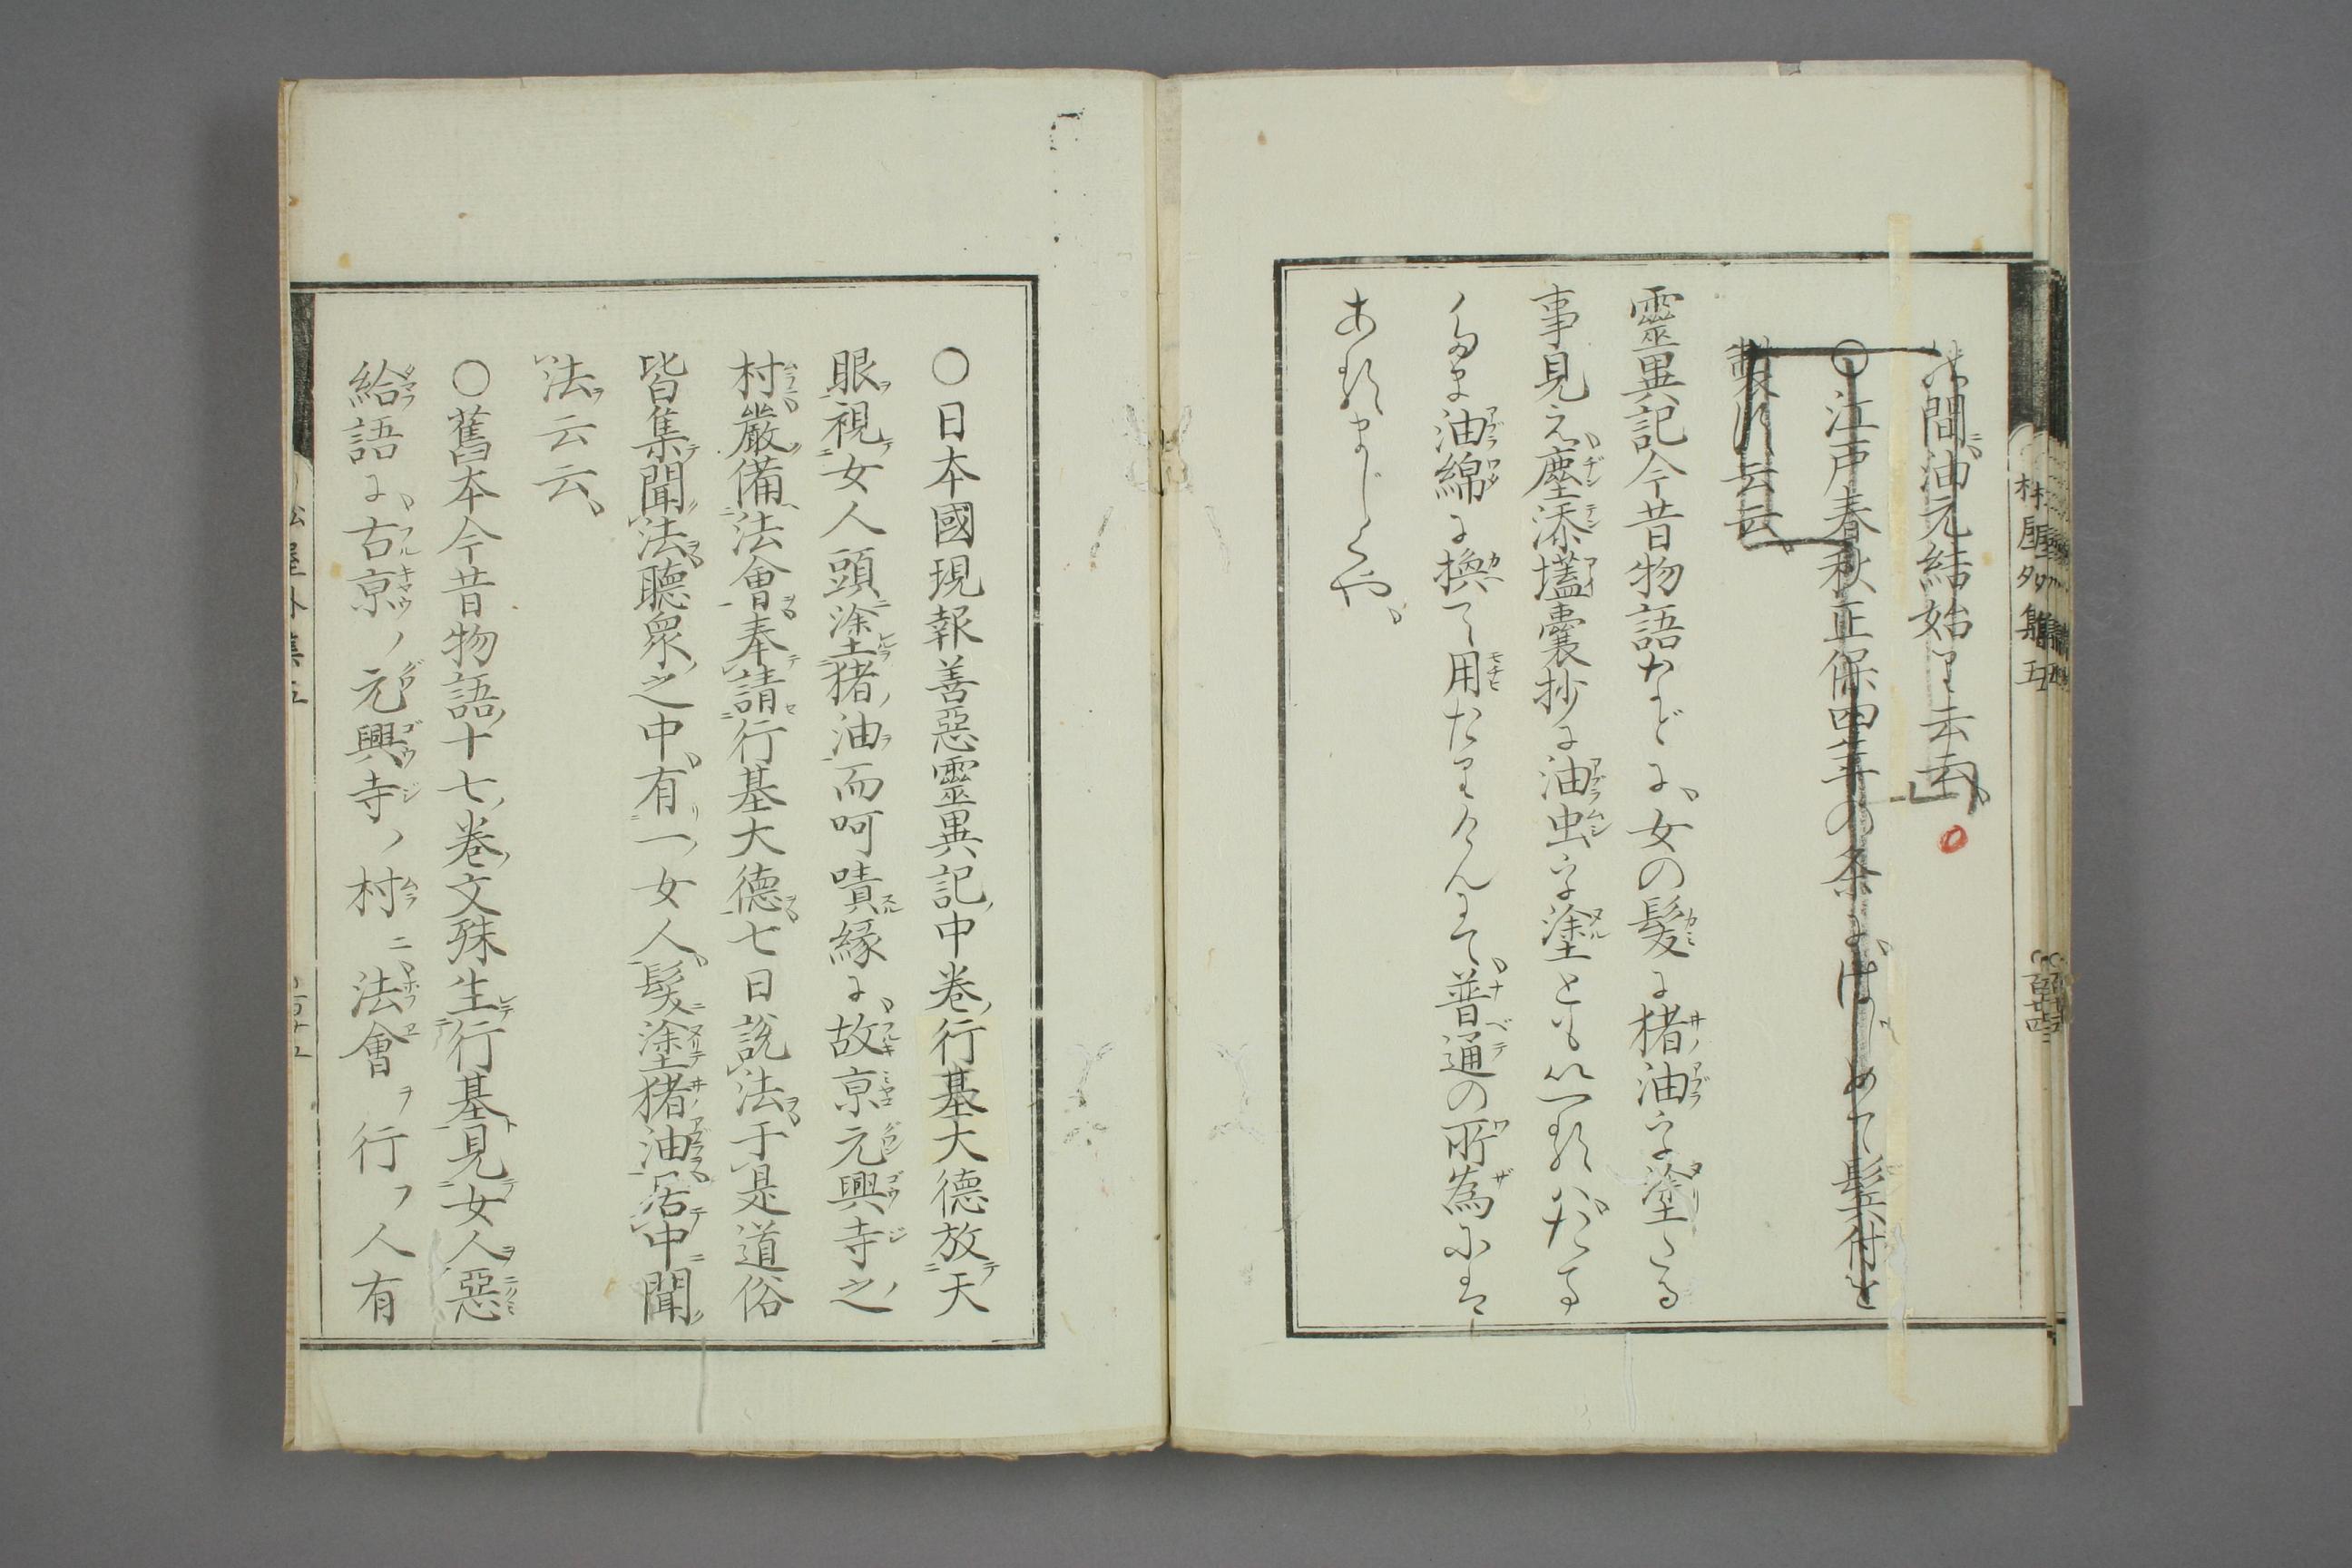 此間油元結始りと云云、
○江戸春秋正保四年の条に、はじめて鬓付を
製す云云、
靈異記今昔物語などに、女の髪に猪油を塗たる
事見え、塵添壒囊抄に油虫を塗とも
油綿に換て用たりけんにて、普通の所為には
あるまじくや、
○日本國現報善惡靈異記中卷行基大德放天
眼視女人頭塗猪油而呵嘖緣に、故京元興寺之
村嚴備法會奉請行基大德七日說法于是道俗
皆集聞法聽衆之中有一女人髮塗猪油居中聞
法云云、
○舊本今昔物語十七卷文殊生行基見女人惡
給語に、古京ノ元興寺ノ村ニ法會ヲ行フ人有